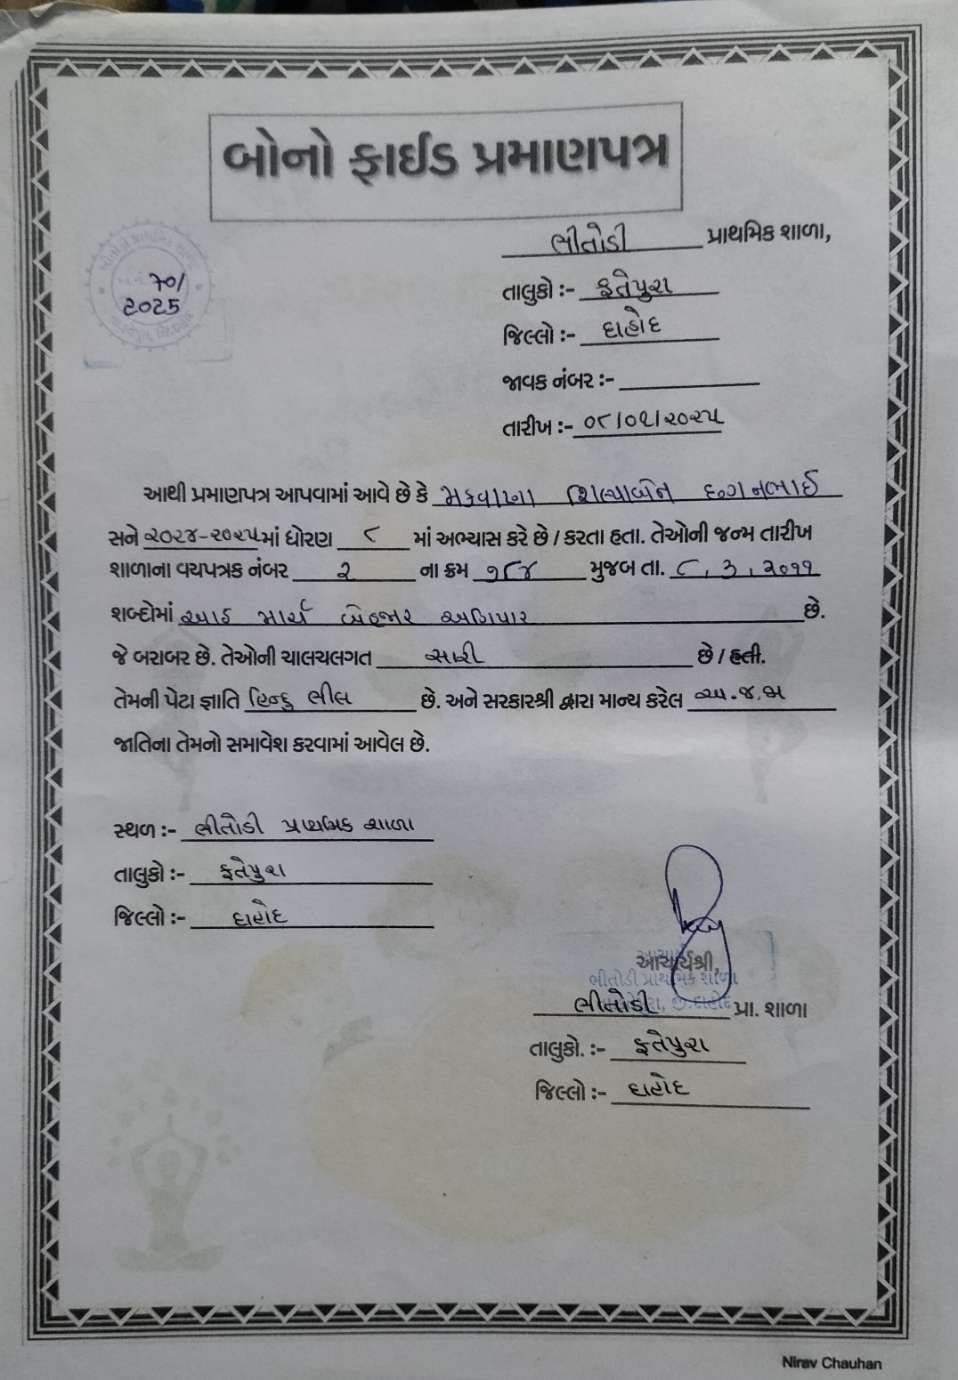 બોનો ફાઈડ પ્રમાણપત્ર
ભીતોડી પ્રાથમિક શાળા,
70/
2025
તાલુકો :- ફતેપુરા
જિલ્લો :- દાહોદ
જાવક નંબર :-
તારીખ :- ૦૮/૦૧/૨૦૨૫
આથી પ્રમાણપત્ર આપવામાં આવે છે કે મકવાણા શિલ્પાબેન છગનભાઈ
સને ૨૦૨૪-૨૦૨૫માં ધોરણ ૮ માં અભ્યાસ કરે છે / કરતા હતા. તેઓની જન્મ તારીખ
શાળાના વયપત્રક નંબર ૨ ના ક્રમ ૧૮૪ મુજબ તા. ૮.૩.૨૦૧૧
શબ્દોમાં આઠ માર્ચ બેહજાર અગિયાર છે.
જે બરાબર છે. તેઓની ચાલચલગત સારી છે / હતી.
તેમની પેટા જ્ઞાતિ હિન્દુ ભીલ છે. અને સરકારશ્રી દ્વારા માન્ય કરેલ અ.જ.જા
જાતિના તેમનો સમાવેશ કરવામાં આવેલ છે.
સ્થળ :- ભીતોડી પ્રાથમિક શાળા
તાલુકો :- ફતેપુરા
જિલ્લો :- દાહોદ
આચાર્યશ્રી,
ભીતોડી પ્રાથમિક શાળા
ભીતોડી પ્રા. શાળા
તાલુકો. :- ફતેપુરા
જિલ્લો :- દાહોદ
Nirav Chauhan